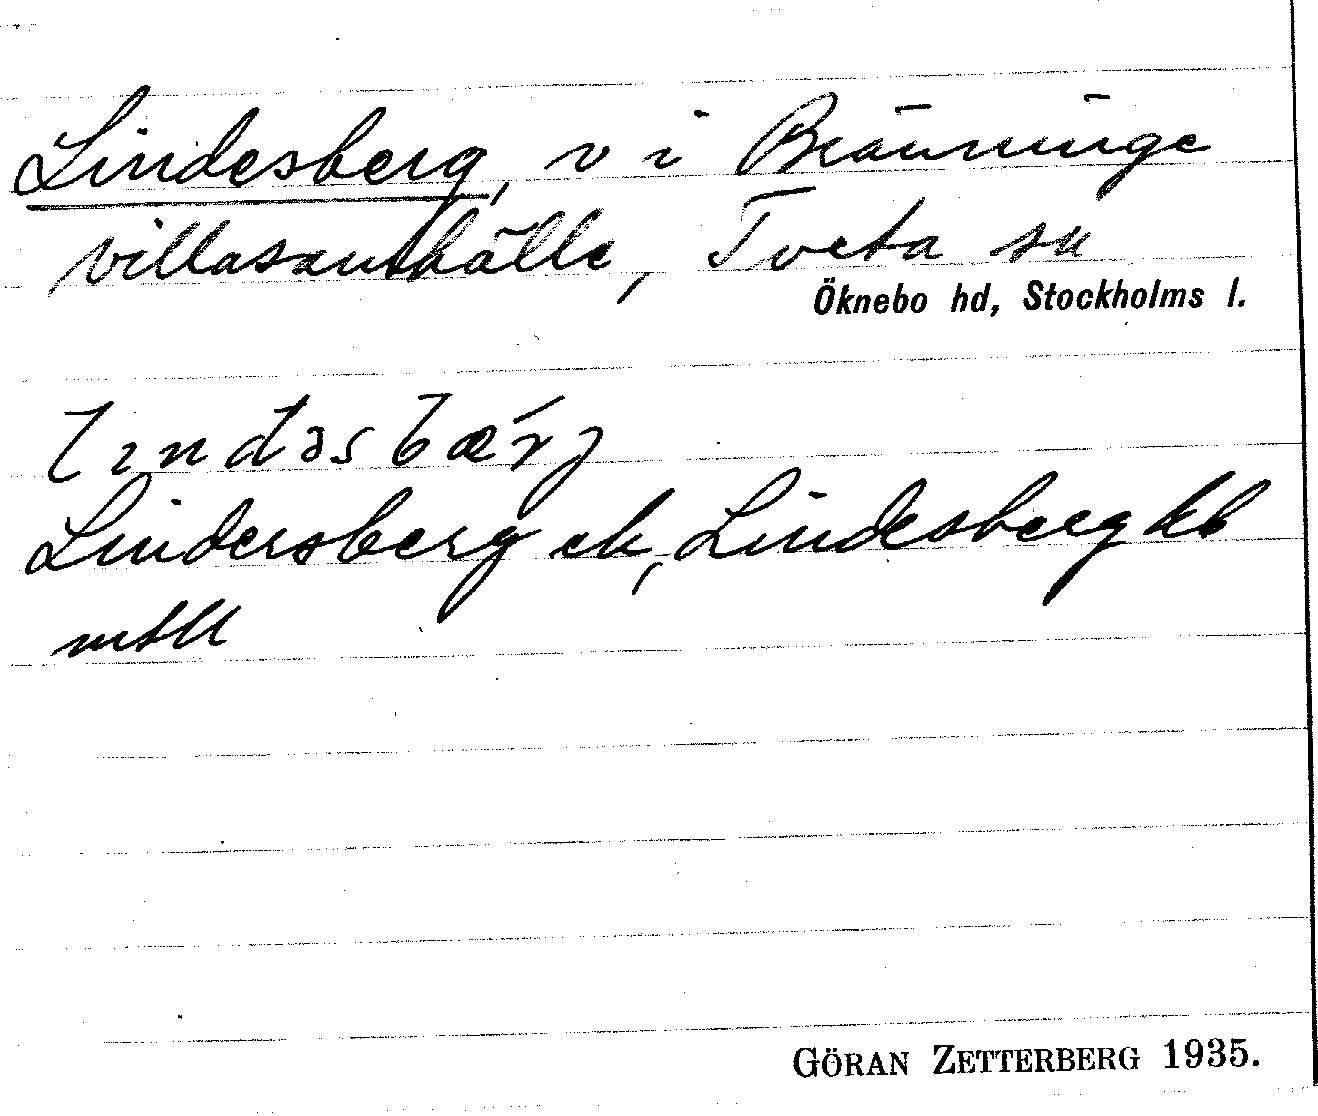 Lindesberg, v i Bränninge
villasamhälle, Tveta sn
Öknebo hd, Stockholms l.
lindəsbærj
Lindersberg ek, Lindesberg kb
mtll
GÖRAN ZETTERBERG 1935.